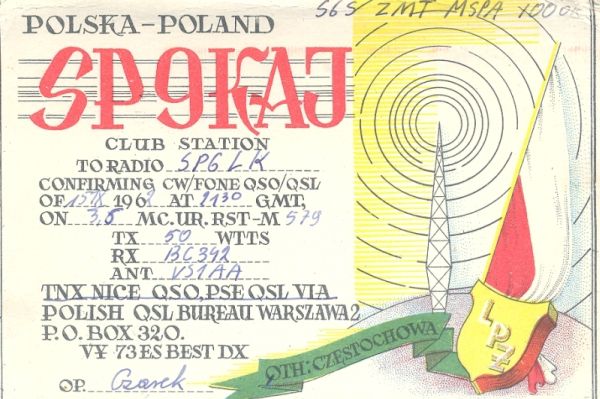 S6S ZMT MSPA
POLSKA-POLAND
SP9KAJ
CLUB STATION
TO RADIO SP6LK
CONFIRMING CW/FONE QSO/QSL
OF 15 IX 1962 AT 2130 GMT,
ON 3,5 MC. UR. RST-M 579
TX 50 WTTS
RX BC342
ANT VS1AA
TNX NICE QSO, PSE QSL VIA
POLISH QSL BUREAU WARSZAWA 2
P.O. BOX 320.
VY 73 ES BEST DX
OP. Czarek
QTH: CZĘSTOCHOWA
LPŻ